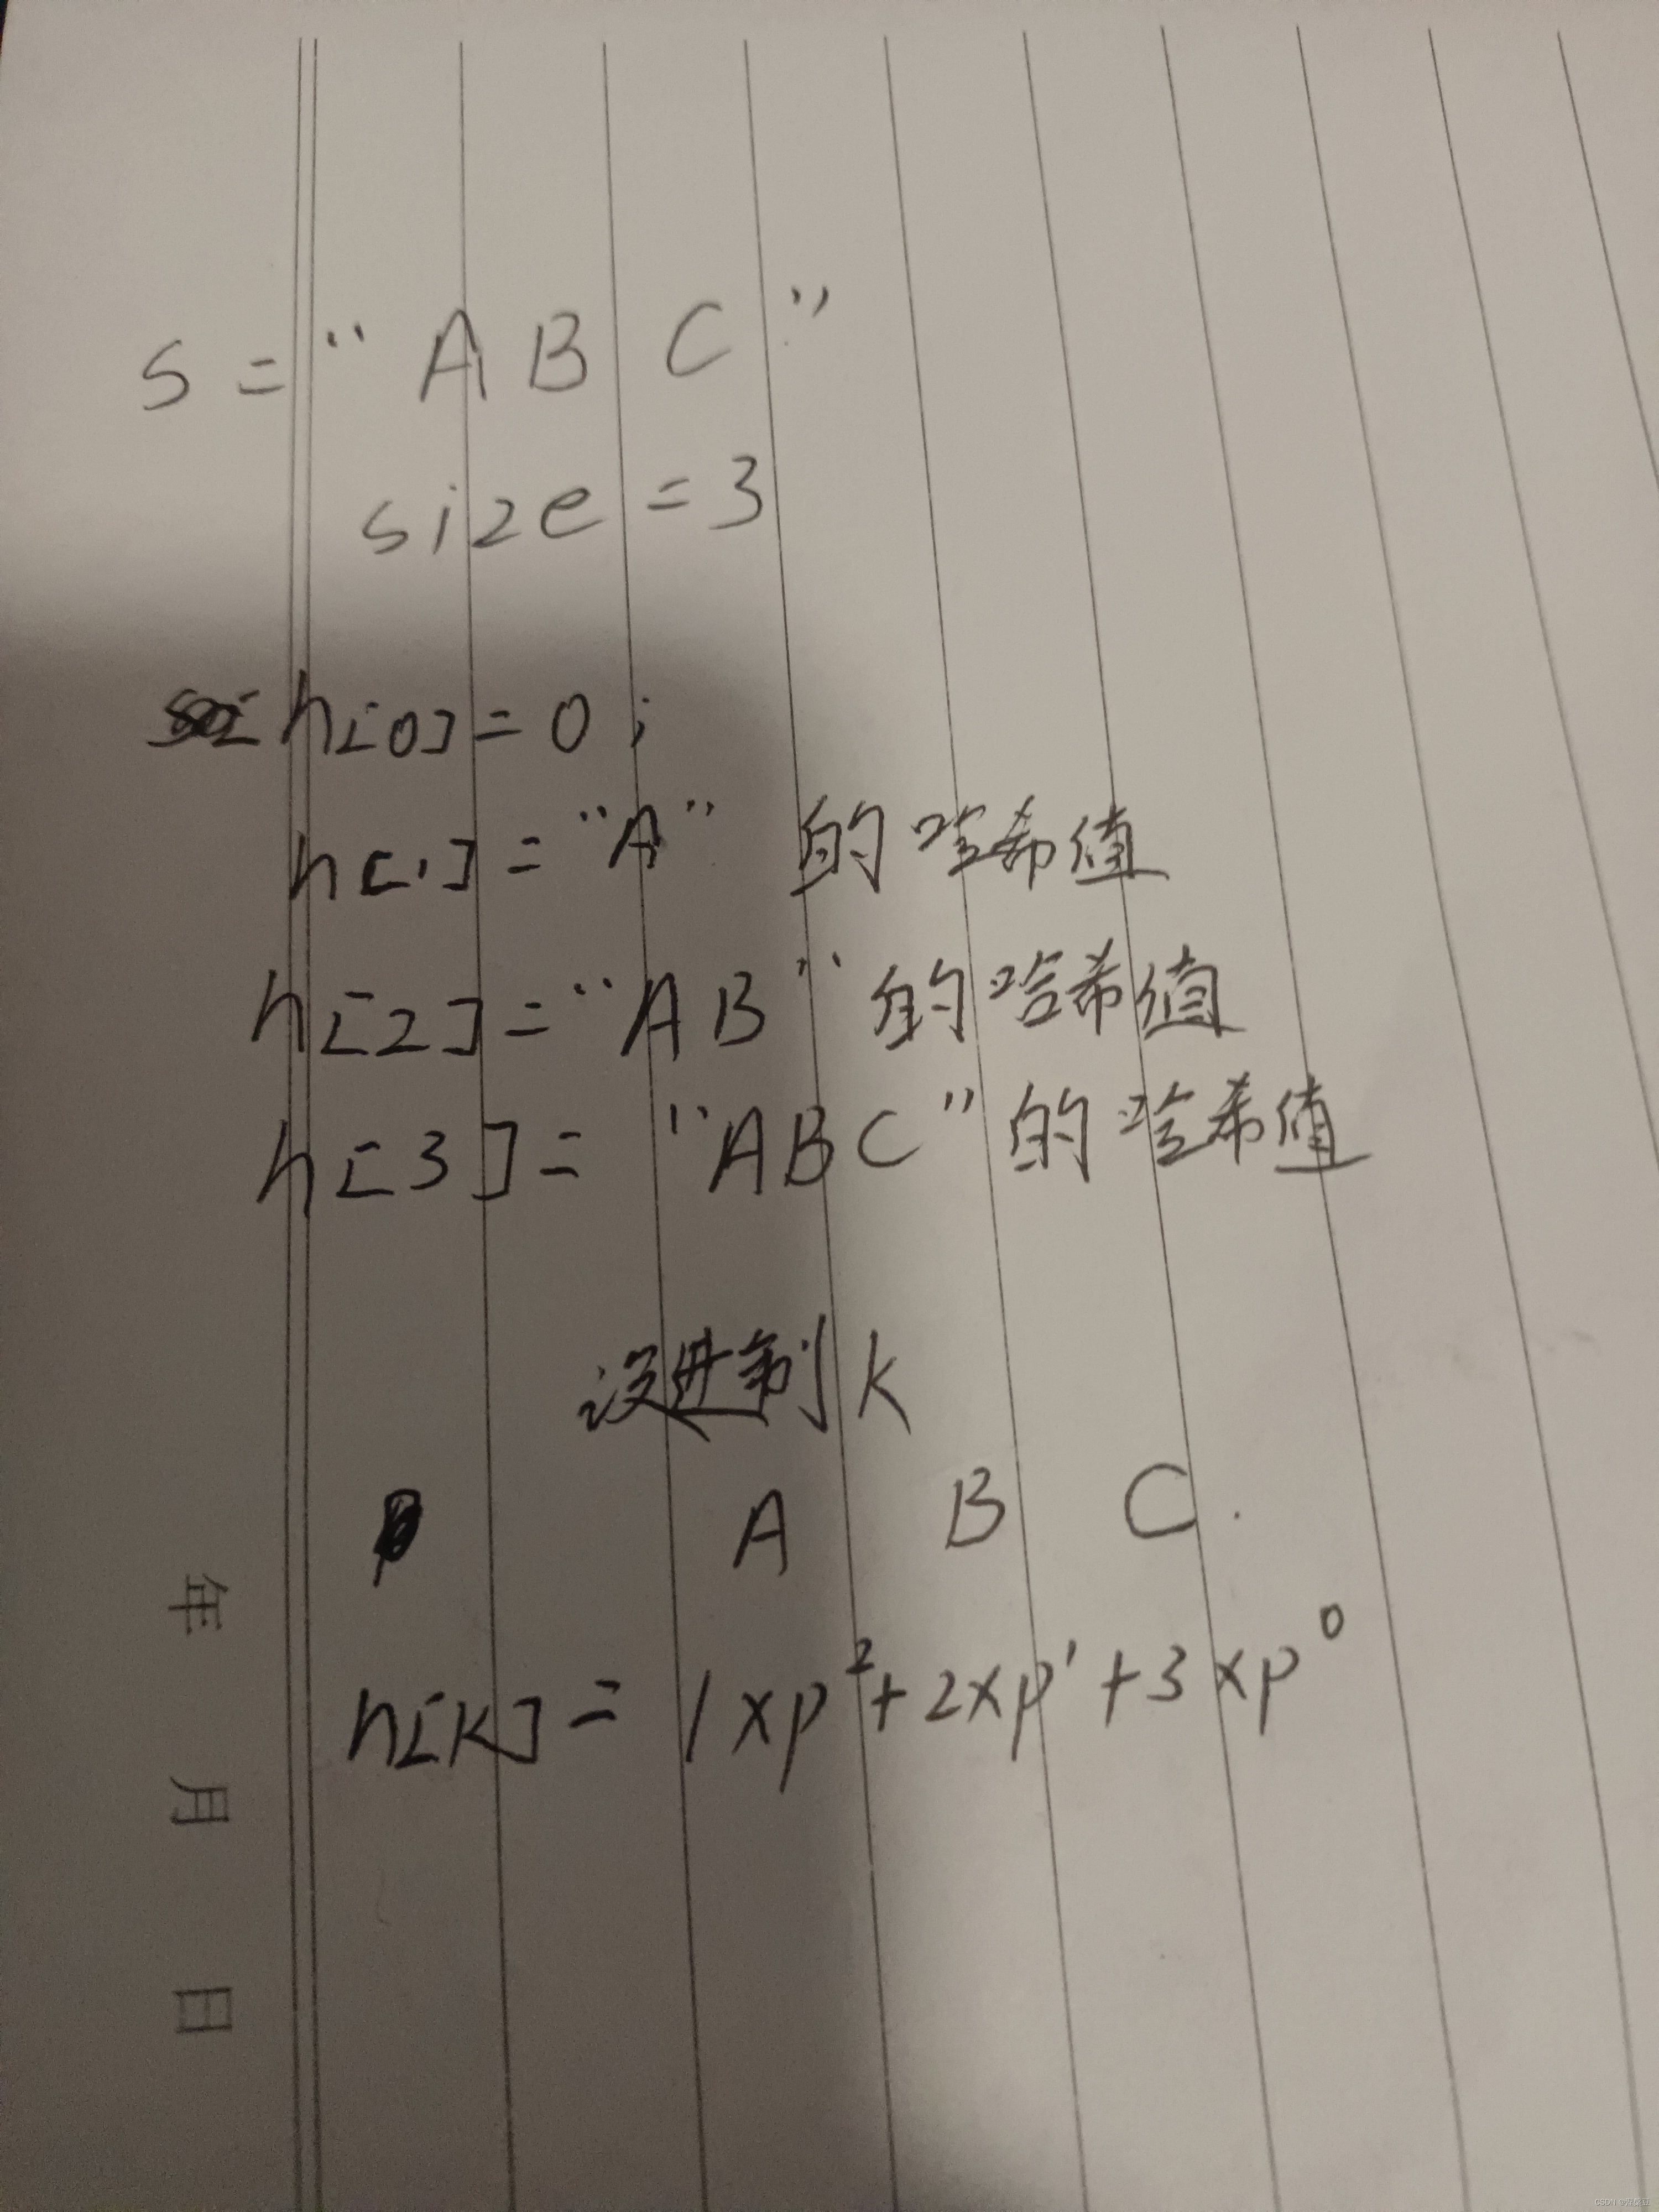 S = "A B C"
size = 3
h[0] = 0 ;
h[1] = "A" 的哈希值
h[2] = "AB" 的哈希值
h[3] = "ABC" 的哈希值
设进制 K
A B C .
h[K] = 1×p²+2×p¹+3×p⁰
年 月 日